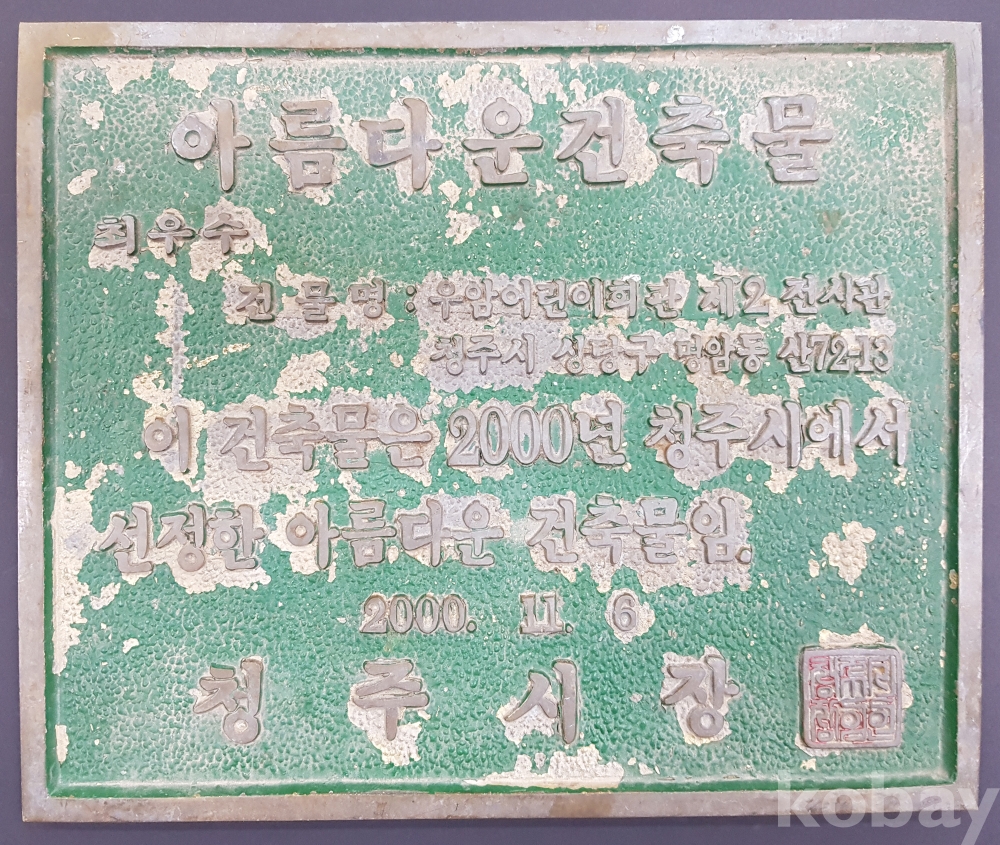 아름다운건축물
최우수
건물명 : 우암어린이회관 제2 전시관
청주시 상당구 명암동 산72-13
이 건축물은 2000년 청주시에서
선정한 아름다운 건축물임.
2000. 11. 6
청주시장
kobay